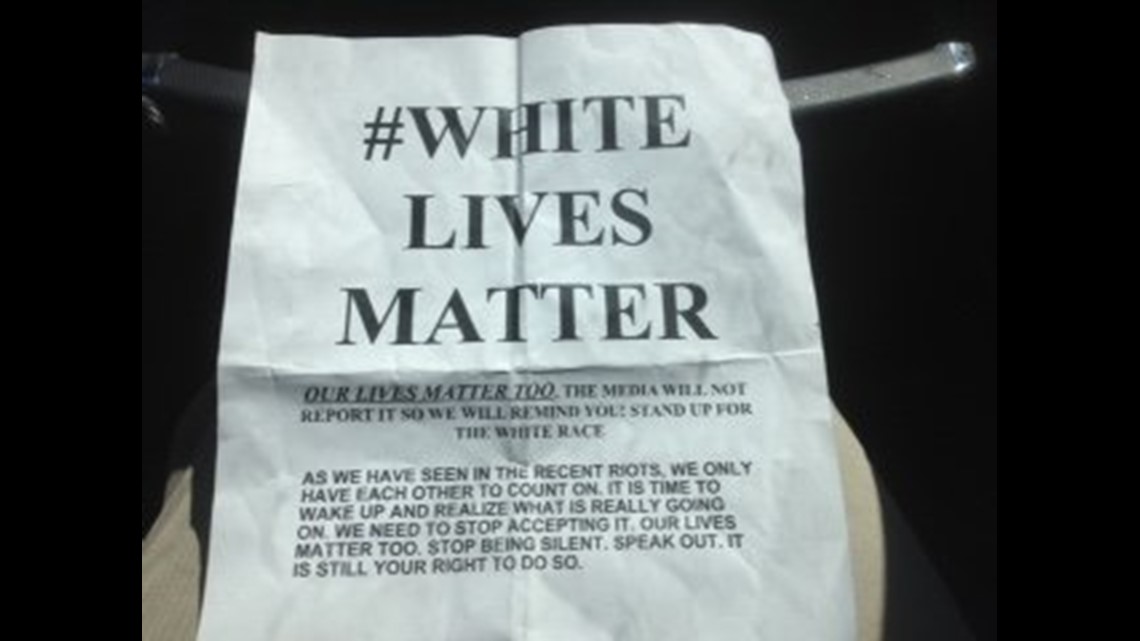 #WHITE
LIVES
MATTER
OUR LIVES MATTER TOO. THE MEDIA WILL NOT
REPORT IT SO WE WILL REMIND YOU! STAND UP FOR
THE WHITE RACE
AS WE HAVE SEEN IN THE RECENT RIOTS, WE ONLY
HAVE EACH OTHER TO COUNT ON. IT IS TIME TO
WAKE UP AND REALIZE WHAT IS REALLY GOING
ON. WE NEED TO STOP ACCEPTING IT. OUR LIVES
MATTER TOO. STOP BEING SILENT. SPEAK OUT. IT
IS STILL YOUR RIGHT TO DO SO.